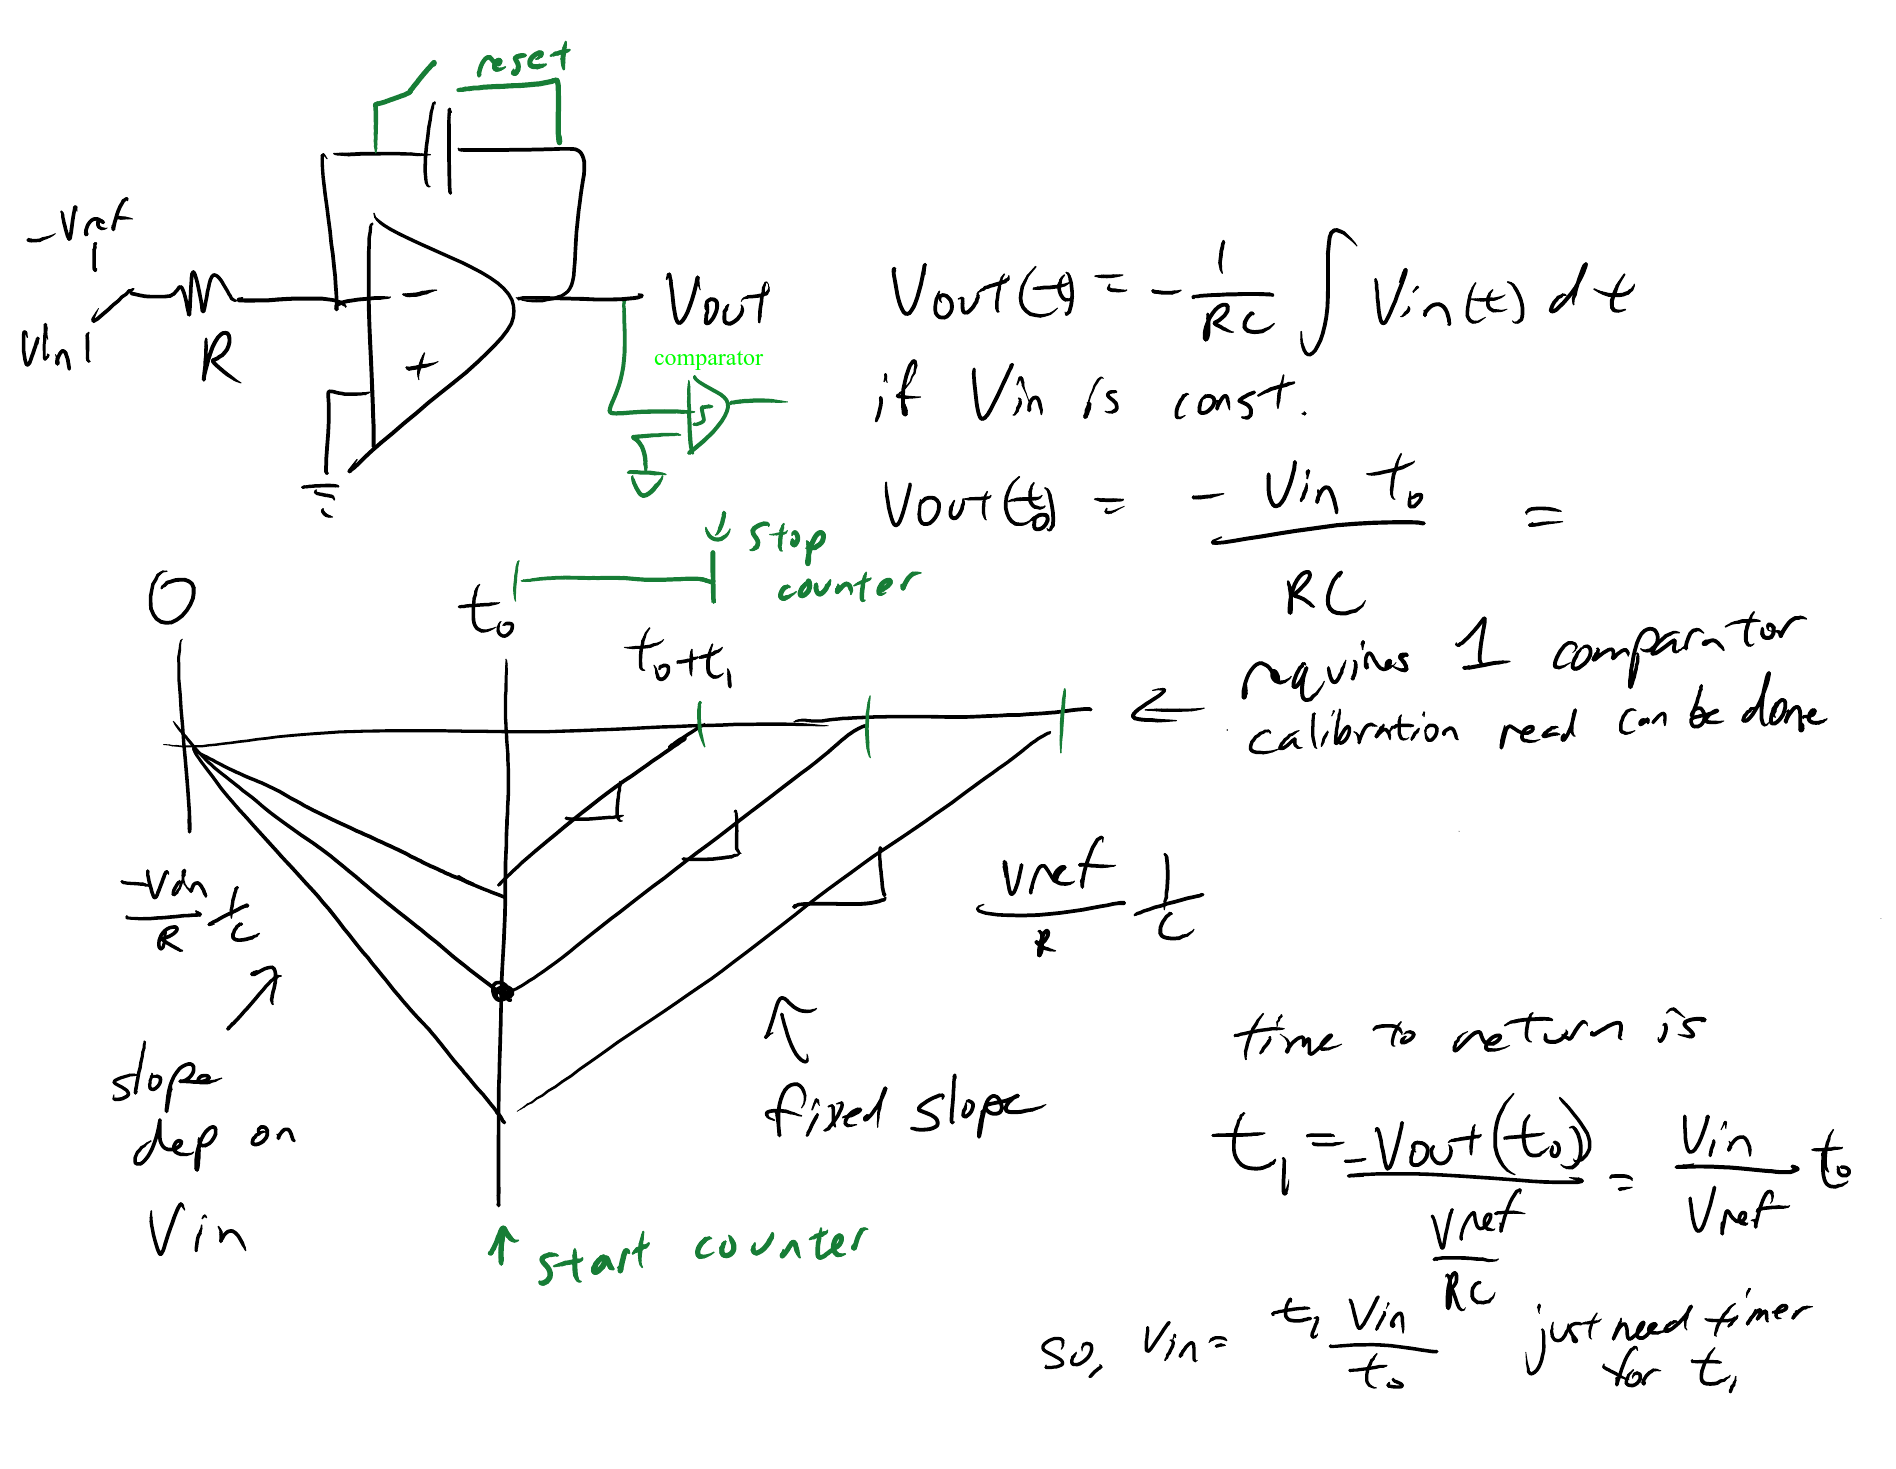 reset
-Vref
Vin
R
-
+
Vout
comparator
Vout(t) = - 1/RC ∫ Vin(t) dt
if Vin is const.
Vout(t₀) = - Vin t₀ / RC =
stop
counter
0
t₀
t₀+t₁
← requires 1 comparator
calibration read can be done
-Vin/R 1/C
Vref/R 1/C
slope
dep on
Vin
fixed slope
start counter
time to return is
t₁ = -Vout(t₀) / (Vref/RC) = Vin/Vref t₀
so, Vin = t₁ Vin/t₀
just need timer
for t₁